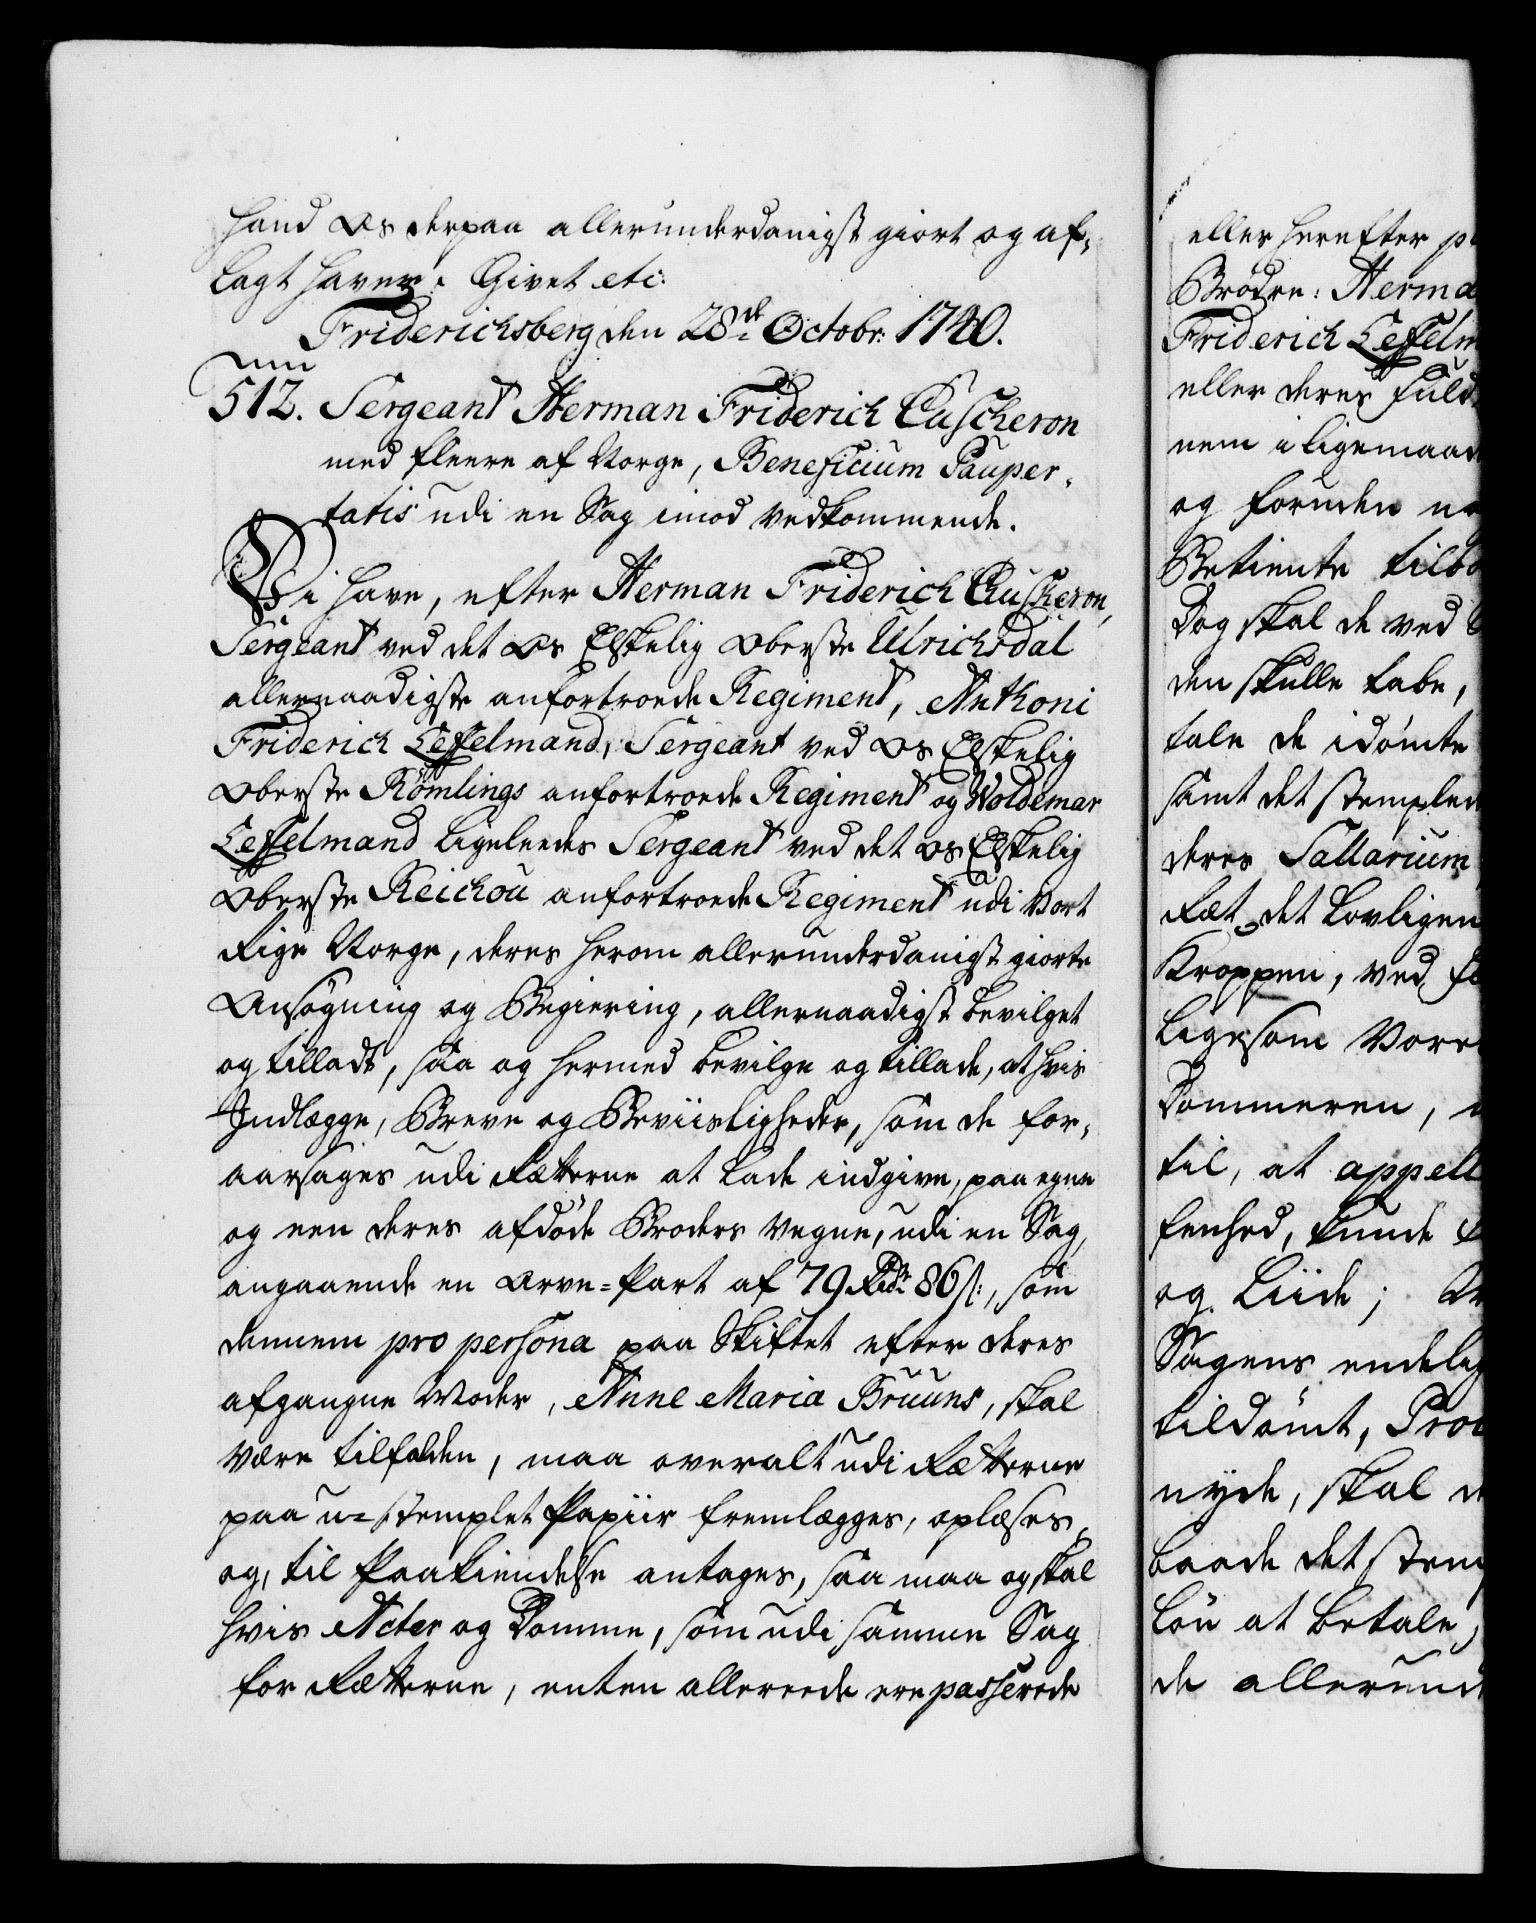 hand Os derpaa allerunderdanigst giort og af-
lagt haver. Givet etc:
Friderichsberg den 28de Octobr: 1740.
512. Sergeant Herman Friderich Cuscheron
med fleere af Norge, Beneficium Pauper-
tatis udi en Sag imod Vedkommende.
Vi have, efter Herman Friderich Cuscheron,
Sergeant ved det Os Elskelig Oberste Ulrichsdal
allernaadigste anfortroede Regiment, Anthoni
Friderich Leffelmand, Sergeant ved Os Elskelig
Oberste Römlings anfortroede Regiment og Woldemar
Leffelmand ligeleedes Sergeant ved det Os Elskelig
Oberste Reichou anfortroede Regiment udi Vort
Rige Norge, deres herom allerunderdanigst giorte
Ansøgning og Begiering, allernaadigst bevilget
og tilladt, saa og hermed bevilge og tillade, at hvis
Indlægge, Breve og Beviisligheder, som de for-
aarsages udi Rætterne at lade indgive, paa egne
og een deres afdøde Broders Vegne, udi en Sag,
angaaende en Arve-Part af 79 Rdr 86 s:, som
dennem pro persona paa Skiftet efter deres
afgangne Moder, Anne Maria Bruuns, skal
være tilfalden, maa overalt udi Rætterne
paa u-stemplet Papiir fremlægges, oplæses,
og, til Paakiendelse antages, saa maa og skal
hvis Acter og Domme, som udi samme Sag
for Rætterne, enten allereede ere passerede
eller herefter
Brødre: Herma
Friderich Leffelm
eller deres Fuld
nem i ligemaad
og foruden no
Betiente tilbø
Dog skal de ved
den skulle tabe,
tale de idømte
samt det stemplede
deres Sallarium
Ræt det Lovligen
Kroppen, ved
ligesom Vore
Dommeren,
til, at appell
fenhed, kunde
og Liide;
Sagens endelig
tildømt, Pro
nyde, skal
baade det stem
Løn at betale,
de allerund